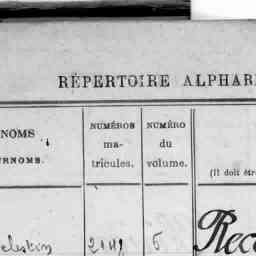 RÉPERTOIRE ALPHAB
NOMS
RNOMS.
NUMÉROS
ma-
tricules.
NUMÉRO
du
volume.
(Il doit êtr
elestin 5 Reco